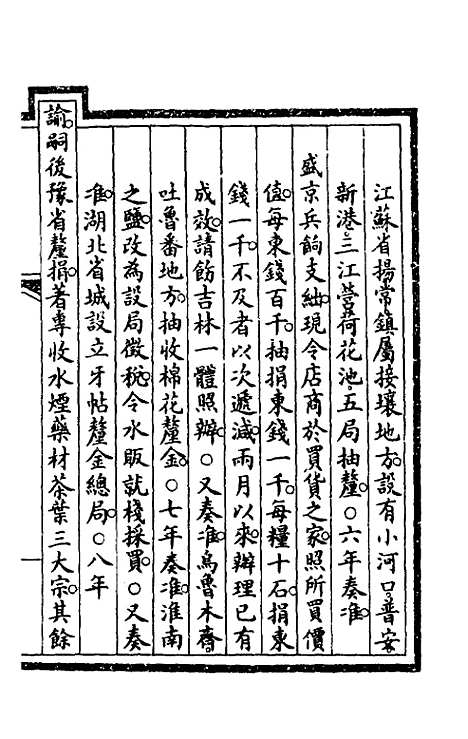 江蘇省揚常鎮屬接壤地方設有小河口普安
新港三江營荷花池五局抽釐○六年奏准
盛京兵餉支絀現令店商於買貨之家照所買價
值每東錢百千抽捐東錢一千每糧十石捐東
錢一千不及者以次遞減兩月以來辦理已有
成效請飭吉林一體照辦○又奏准烏魯木齊
吐魯番地方抽收棉花釐金○七年奏准淮南
之鹽改為設局徵稅令水販就棧採買○又奏
准湖北省城設立牙帖釐金總局○八年
諭嗣後豫省釐捐著專收水煙藥材茶葉三大宗其餘